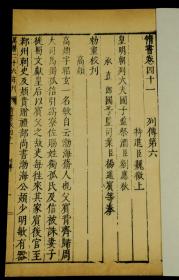 隋書卷四十 列傳第六
特進臣魏徵上
皇明朝列大夫國子監祭酒臣劉應秋
承直郎國子監司業臣楊道賓等奉
勑重校刊
高熲
高熲字昭玄一名敏自云渤海蓨人也父賓背齊歸周
大司馬獨孤信引為僚佐賜姓獨孤氏及信被誅妻子
徙蜀文獻皇后以賓父之故吏每往來其家賓後官至
鄀州刺史及熲貴贈禮部尚書渤海公熲少明敏有器